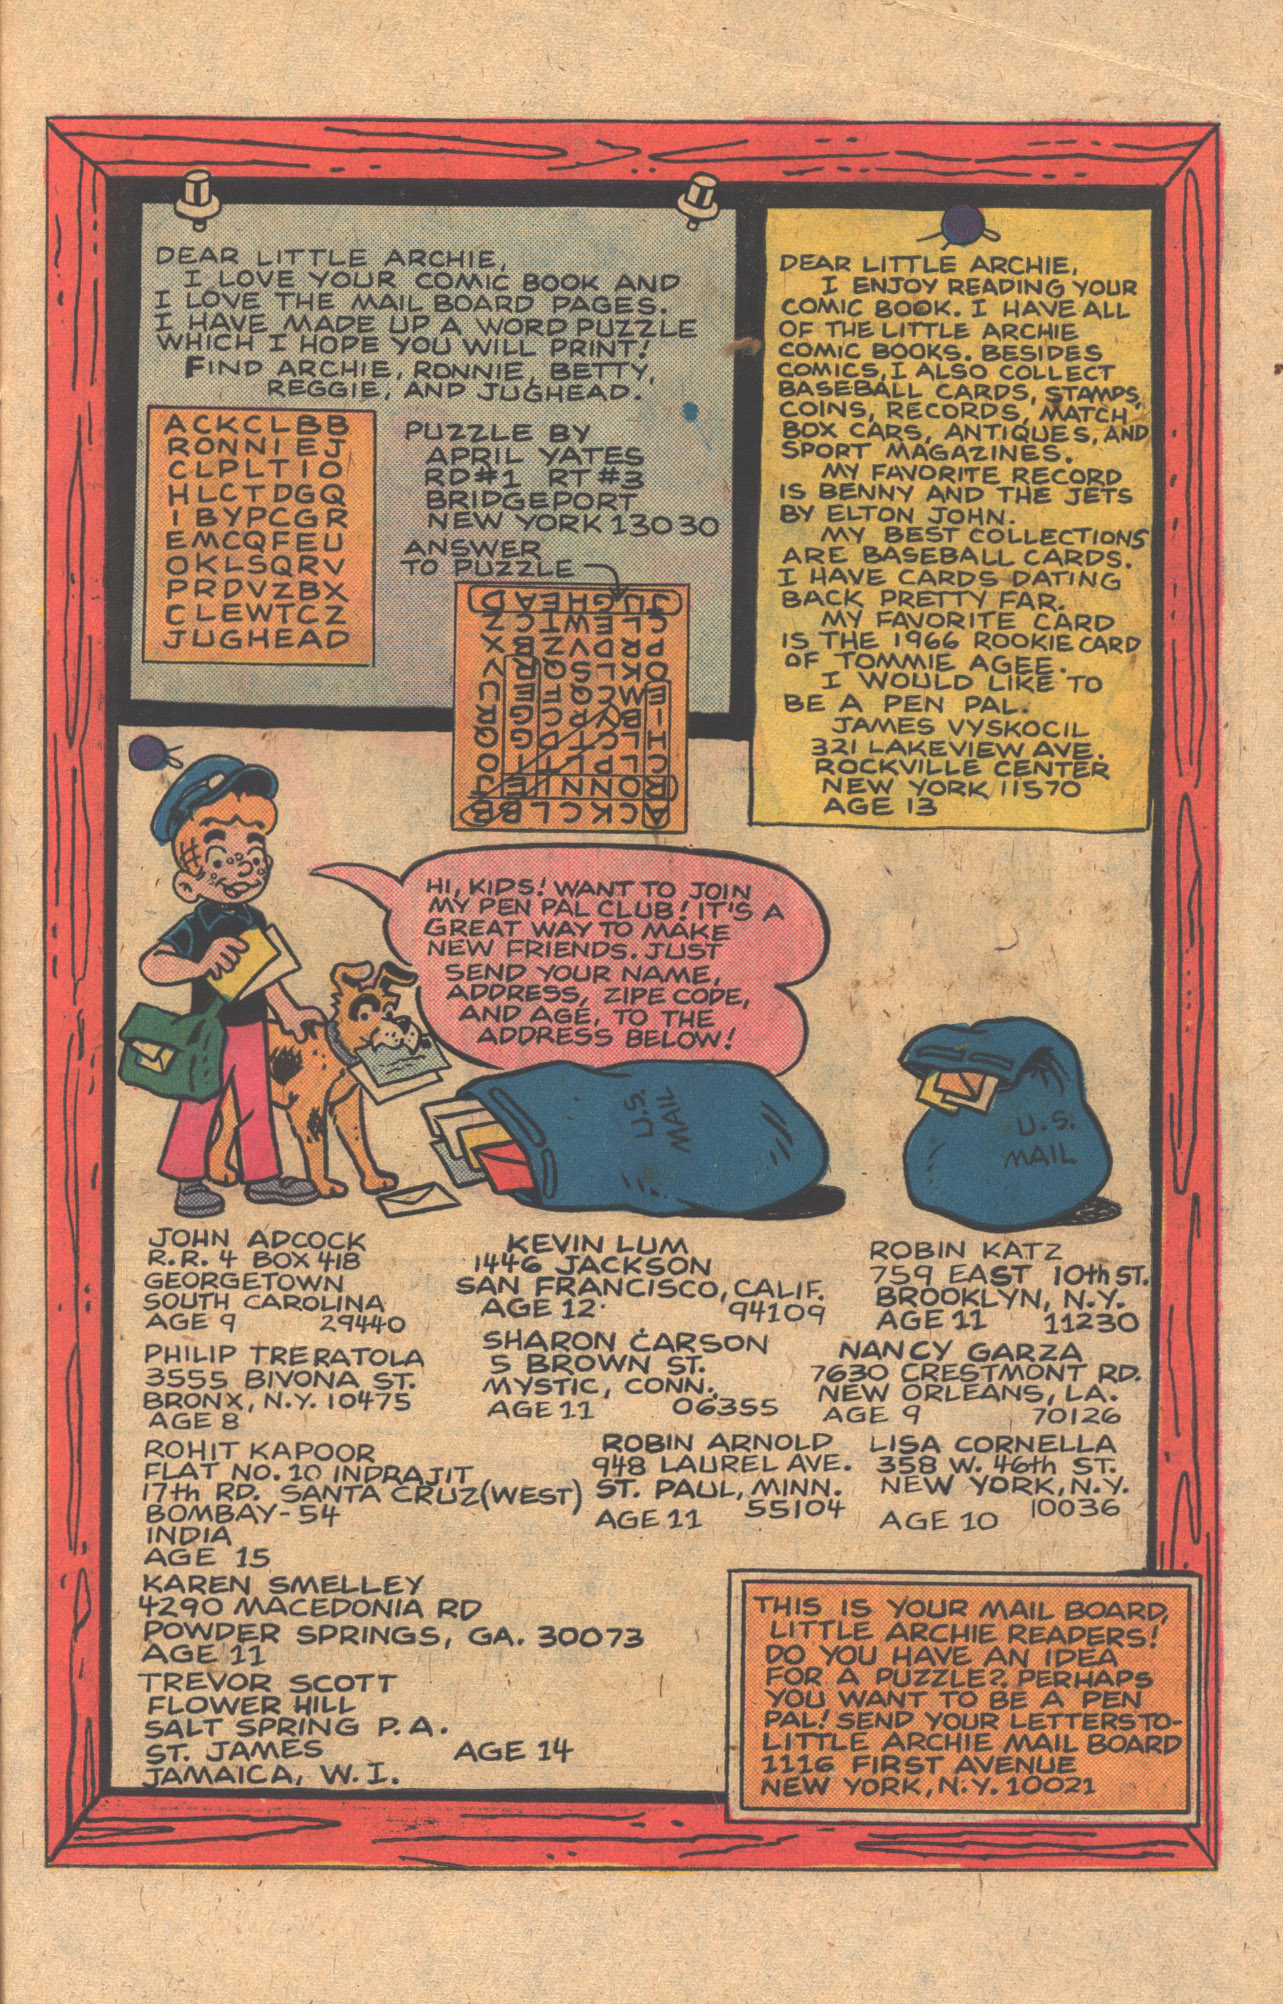 DEAR LITTLE ARCHIE,
I LOVE YOUR COMIC BOOK AND
I LOVE THE MAIL BOARD PAGES.
I HAVE MADE UP A WORD PUZZLE
WHICH I HOPE YOU WILL PRINT!
FIND ARCHIE, RONNIE, BETTY,
REGGIE, AND JUGHEAD.
ACKCLBB
RONNIEJ
CLPLTIO
HLCTDGQ
IBYPCGR
EMCQFEU
OKLSQRV
PRDVZBX
CLEWTCZ
JUGHEAD
PUZZLE BY
APRIL YATES
RD#1 RT #3
BRIDGEPORT
NEW YORK 13030
ANSWER
TO PUZZLE
ACKCLBB
RONNIEJ
CLPLTIO
HLCTDGQ
IBYPCGR
EMCQFEU
OKLSQRV
PRDVZBX
CLEWTCZ
JUGHEAD
DEAR LITTLE ARCHIE,
I ENJOY READING YOUR
COMIC BOOK. I HAVE ALL
OF THE LITTLE ARCHIE
COMIC BOOKS. BESIDES
COMICS, I ALSO COLLECT
BASEBALL CARDS, STAMPS,
COINS, RECORDS, MATCH
BOX CARS, ANTIQUES, AND
SPORT MAGAZINES.
MY FAVORITE RECORD
IS BENNY AND THE JETS
BY ELTON JOHN.
MY BEST COLLECTIONS
ARE BASEBALL CARDS.
I HAVE CARDS DATING
BACK PRETTY FAR.
MY FAVORITE CARD
IS THE 1966 ROOKIE CARD
OF TOMMIE AGEE.
I WOULD LIKE TO
BE A PEN PAL.
JAMES VYSKOCIL
321 LAKEVIEW AVE.
ROCKVILLE CENTER
NEW YORK 11570
AGE 13
HI, KIDS! WANT TO JOIN
MY PEN PAL CLUB! IT'S A
GREAT WAY TO MAKE
NEW FRIENDS. JUST
SEND YOUR NAME,
ADDRESS, ZIPE CODE,
AND AGE, TO THE
ADDRESS BELOW!
U.S.
MAIL
U.S.
MAIL
JOHN ADCOCK
R.R. 4 BOX 418
GEORGETOWN
SOUTH CAROLINA
AGE 9 29440
KEVIN LUM
1446 JACKSON
SAN FRANCISCO, CALIF.
AGE 12 94109
ROBIN KATZ
759 EAST 10th ST.
BROOKLYN, N.Y.
AGE 11 11230
PHILIP TRERATOLA
3555 BIVONA ST.
BRONX, N.Y. 10475
AGE 8
SHARON CARSON
5 BROWN ST.
MYSTIC, CONN.
AGE 11 06355
NANCY GARZA
7630 CRESTMONT RD.
NEW ORLEANS, LA.
AGE 9 70126
ROHIT KAPOOR
FLAT NO. 10 INDRAJIT
17th RD. SANTA CRUZ (WEST)
BOMBAY-54
INDIA
AGE 15
ROBIN ARNOLD
948 LAUREL AVE.
ST. PAUL, MINN.
AGE 11 55104
LISA CORNELLA
358 W. 46th ST.
NEW YORK, N.Y.
AGE 10 10036
KAREN SMELLEY
4290 MACEDONIA RD
POWDER SPRINGS, GA. 30073
AGE 11
TREVOR SCOTT
FLOWER HILL
SALT SPRING P.A.
ST. JAMES AGE 14
JAMAICA, W.I.
THIS IS YOUR MAIL BOARD,
LITTLE ARCHIE READERS!
DO YOU HAVE AN IDEA
FOR A PUZZLE? PERHAPS
YOU WANT TO BE A PEN
PAL! SEND YOUR LETTERS TO-
LITTLE ARCHIE MAIL BOARD
1116 FIRST AVENUE
NEW YORK, N.Y. 10021